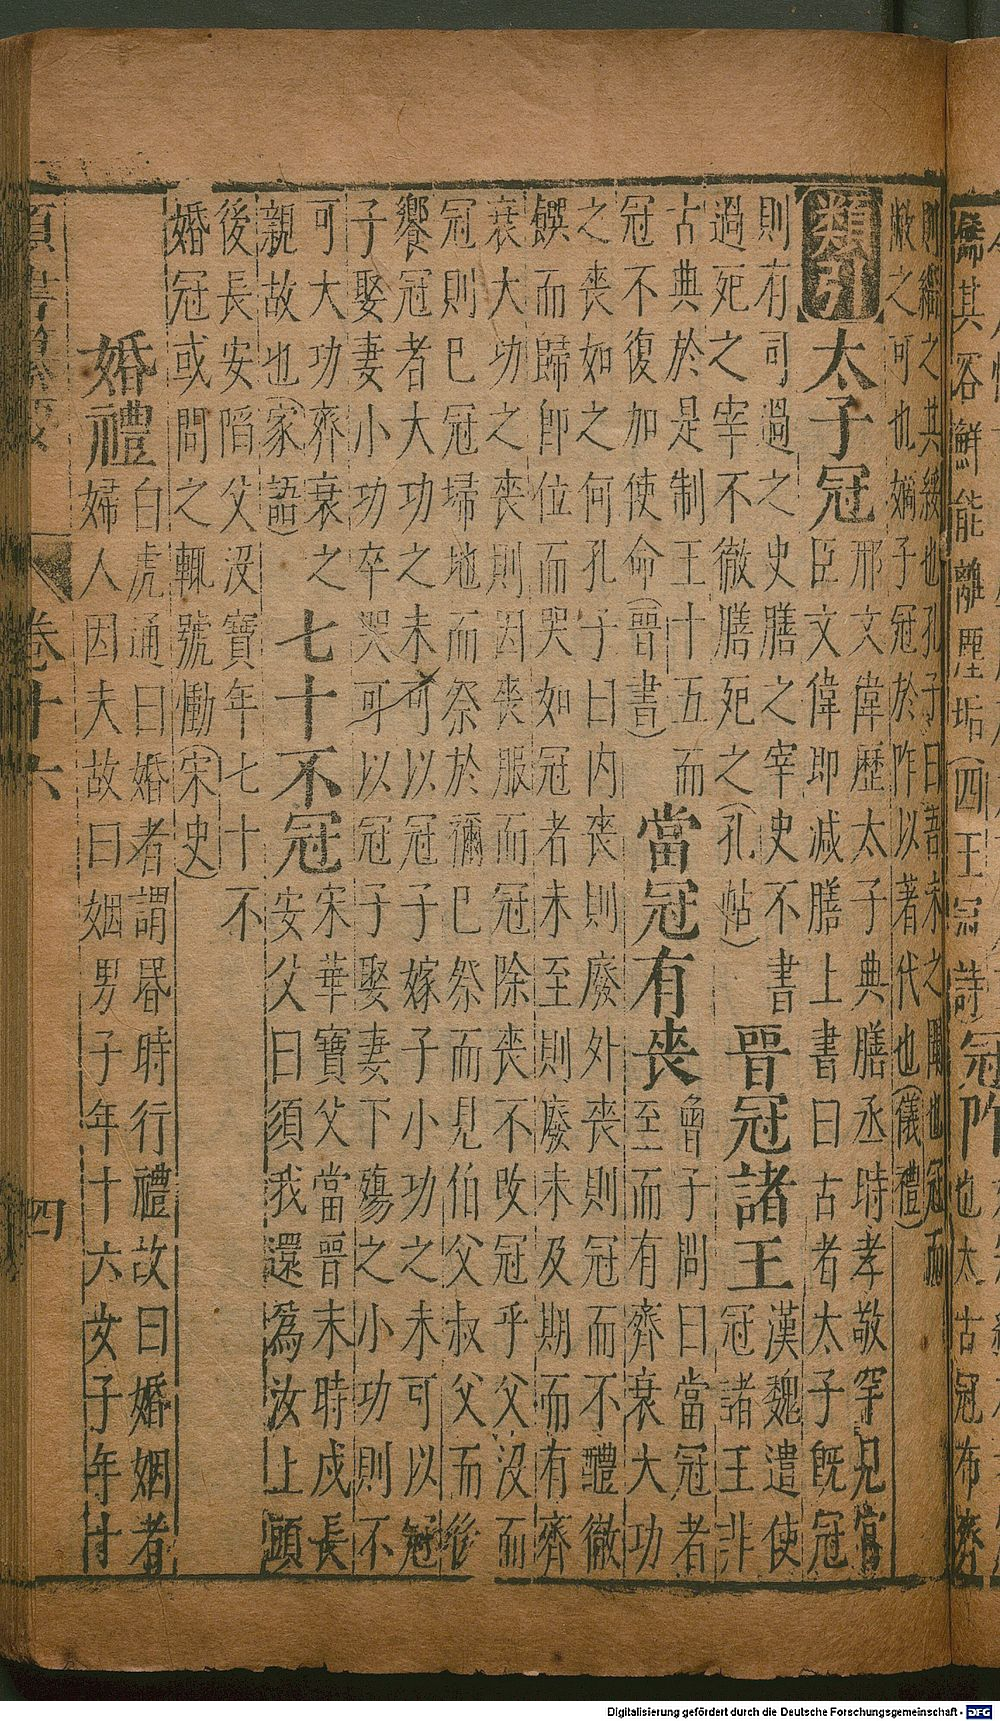 其容鮮能離塵垢(四王冠詩)冠阼也太古冠布齊
則緇之其緌也孔子曰吾未之聞也冠而
敝之可也嫡子冠於阼以著代也(儀禮)
類引
太子冠
邢文偉歷太子典膳丞時孝敬罕見當
臣文偉即减膳上書曰古者太子既冠
則有司過之史膳之宰史不書
過死之宰不徹膳死之(孔帖)
晉冠諸王
漢魏遣使
冠諸王非
古典於是制王十五而
冠不復加使命(晉書)
當冠有喪
曾子問曰當冠者
至而有齊衰大功
之喪如之何孔子曰内喪則廢外喪則冠而不醴徹
饌而歸即位而哭如冠者未至則廢未及期而有齊
衰大功之喪則因喪服而冠除喪不改冠乎父沒而
冠則巳冠埽地而祭於禰巳祭而見伯父叔父而後
饗冠者大功之未可以冠子嫁子小功之未可以冠
子娶妻小功卒哭可以冠子娶妻下殤之小功則不
可大功齊衰之
親故也(家語)
七十不冠
宋華寶父當晉末時戍長
安父曰須我還爲汝上頭
後長安陷父沒寶年七十不
婚冠或問之輒號慟(宋史)
婚禮
白虎通曰婚者謂昏時行禮故曰婚姻者
婦人因夫故曰姻男子年十六女子年十
卷十六
四
Digitalisierung gefördert durch die Deutsche Forschungsgemeinschaft - DFG